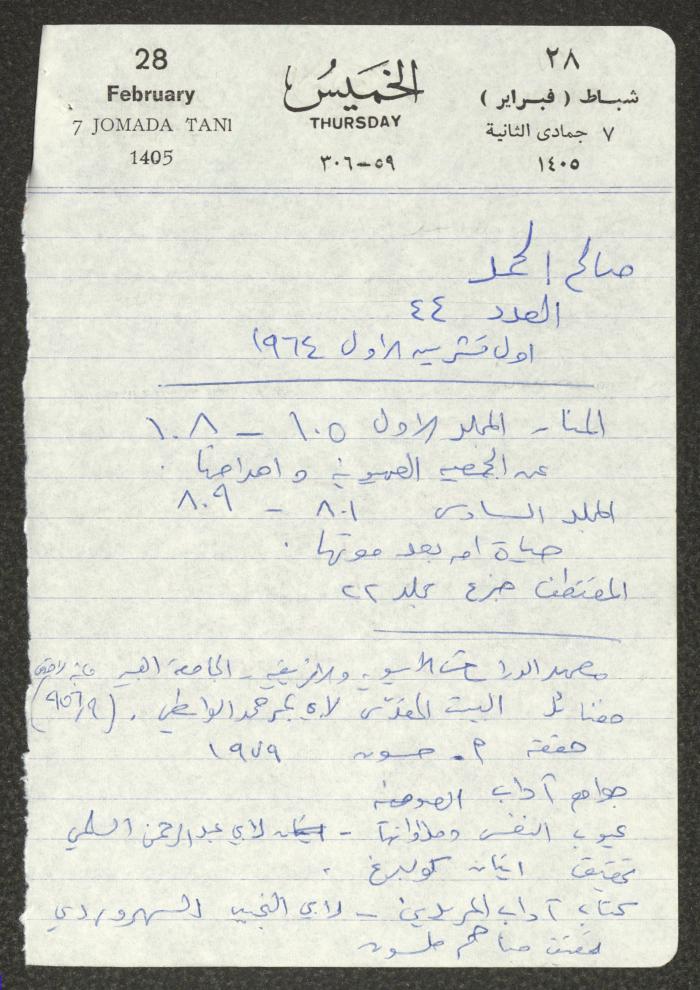 28
February
7 JOMADA TANI
1405
الخَميسُ
THURSDAY
٥٩-٣٠٦
٢٨
شباط ( فبراير )
٧ جمادى الثانية
١٤٠٥
صالح الحمد
العدد ٤٤
اول تشرين الاول ١٩٦٤
المنار المجلد الاول ١٠٥ - ١٠٨
عن الجمعيه الصهيونية و اهدافها .
المجلد السادس ٨٠١ - ٨٠٩
حياة امه بعد موتها .
المقتطف جزء مجلد ٢٢
معهد الدراسات الاسيوية والافريقية - الجامعة العبرية
فضائل البيت المقدس لابي بكر محمد الواسطي . (٩٥٦/٩)
حققه م. حسون ١٩٧٩
جوامع آداب الصوفية
عيوب النفس ومداواتها - لابي عبد الرحمن السلمي
تحقيق ايتان كولبرغ .
كتاب آداب المريدين - لابي النجيب السهروردي
تحقيق مناحم ملسون